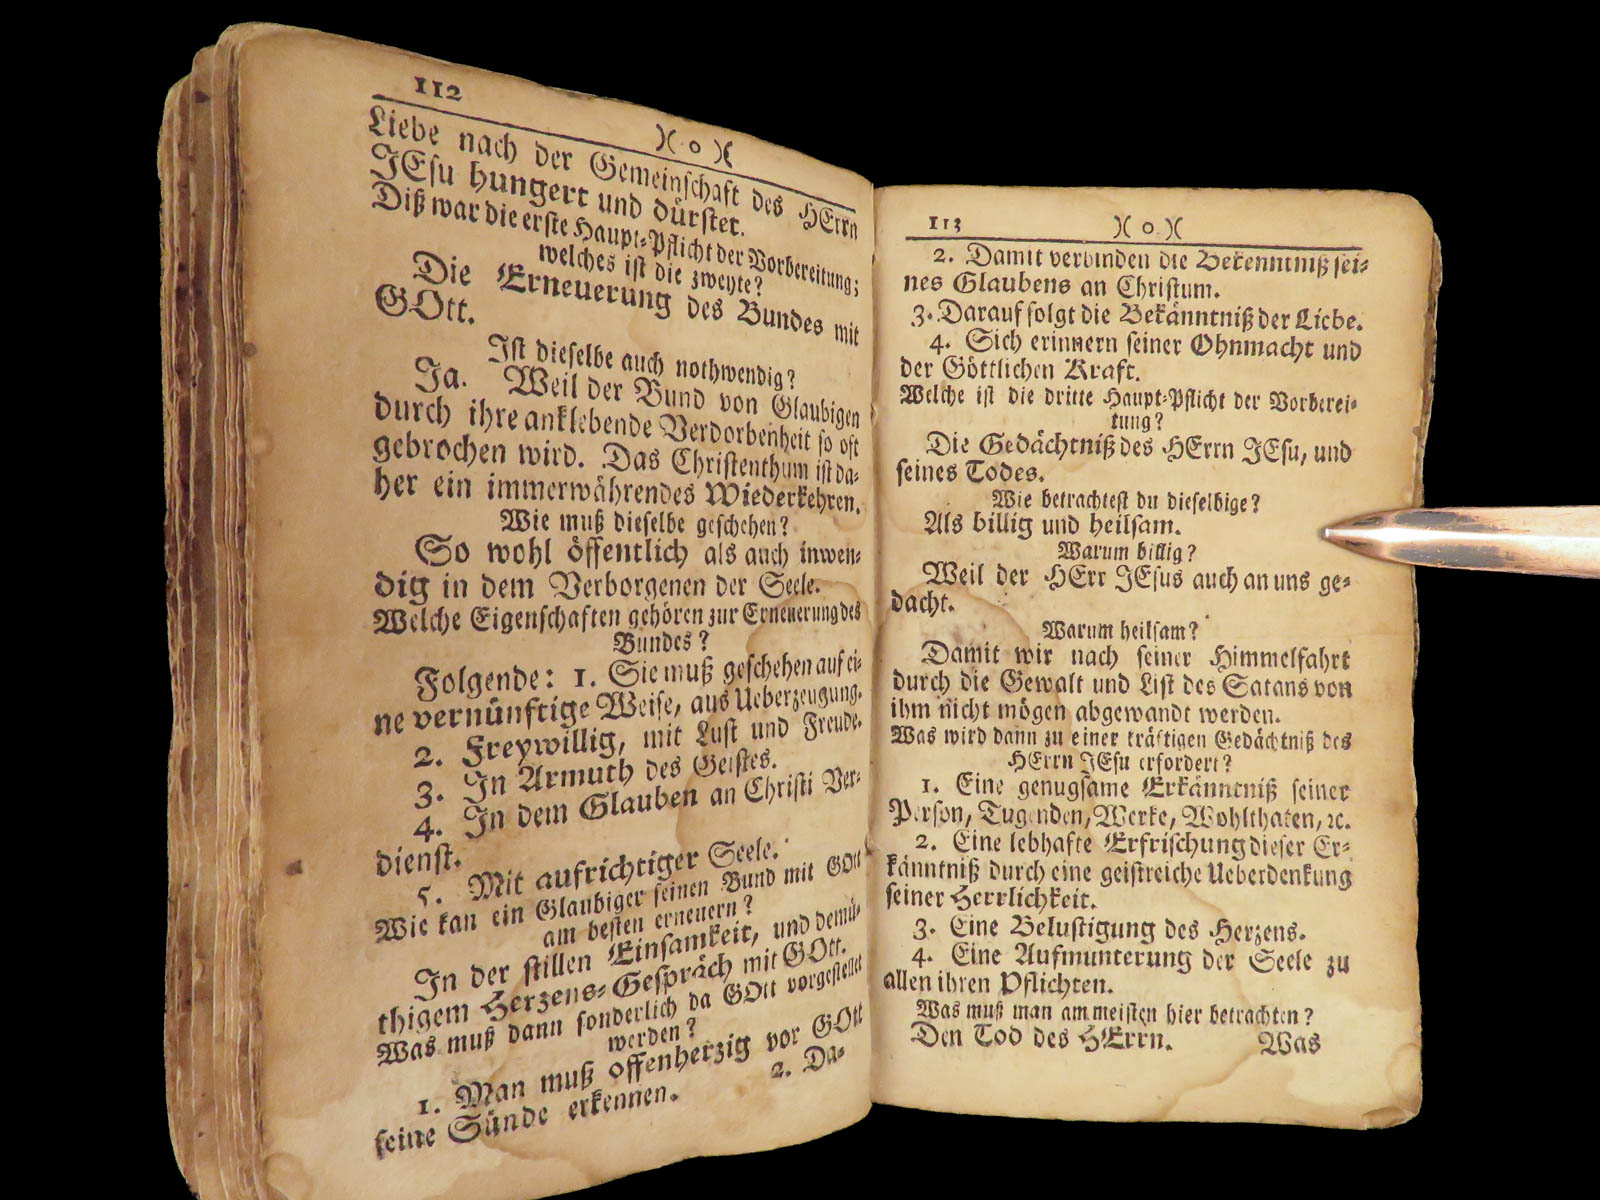 112
)( o )(
Liebe nach der Gemeinschaft des HErrn
JEsu hungert und dürstet.
Diß war die erste Haupt-Pflicht der Vorbereitung;
welches ist die zweyte?
Die Erneuerung des Bundes mit
GOtt.
Ist dieselbe auch nothwendig?
Ja. Weil der Bund von Glaubigen
durch ihre anklebende Verdorbenheit so oft
gebrochen wird. Das Christenthum ist da-
her ein immerwährendes Wiederkehren.
Wie muß dieselbe geschehen?
So wohl öffentlich als auch inwen-
dig in dem Verborgenen der Seele.
Welche Eigenschaften gehören zur Erneuerung des
Bundes?
Folgende: 1. Sie muß geschehen auf ei-
ne vernünftige Weise, aus Ueberzeugung.
2. Freywillig, mit Lust und Freude.
3. In Armuth des Geistes.
4. In dem Glauben an Christi Ver-
dienst.
5. Mit aufrichtiger Seele.
Wie kan ein Glaubiger seinen Bund mit GOtt
am besten erneuern?
In der stillen Einsamkeit, und demü-
thigem Herzens-Gespräch mit GOtt.
Was muß dann sonderlich da GOtt vorgestellet
werden?
1. Man muß offenherzig vor GOtt
seine Sünde erkennen.
2. Da-
113
)( o )(
2. Damit verbinden die Bekenntniß sei-
nes Glaubens an Christum.
3. Darauf folgt die Bekänntniß der Liebe.
4. Sich erinnern seiner Ohnmacht und
der Göttlichen Kraft.
Welche ist die dritte Haupt-Pflicht der Vorberei-
tung?
Die Gedächtniß des HErrn JEsu, und
seines Todes.
Wie betrachtest du dieselbige?
Als billig und heilsam.
Warum billig?
Weil der HErr JEsus auch an uns ge-
dacht.
Warum heilsam?
Damit wir nach seiner Himmelfahrt
durch die Gewalt und List des Satans von
ihm nicht mögen abgewandt werden.
Was wird dann zu einer kräftigen Gedächtniß des
HErrn JEsu erfordert?
1. Eine genugsame Erkänntniß seiner
Person, Tugenden, Werke, Wohlthaten, ꝛc.
2. Eine lebhafte Erfrischung dieser Er-
känntniß durch eine geistreiche Ueberdenkung
seiner Herrlichkeit.
3. Eine Belustigung des Herzens.
4. Eine Aufmunterung der Seele zu
allen ihren Pflichten.
Was muß man am meisten hier betrachten?
Den Tod des HErrn.
Was